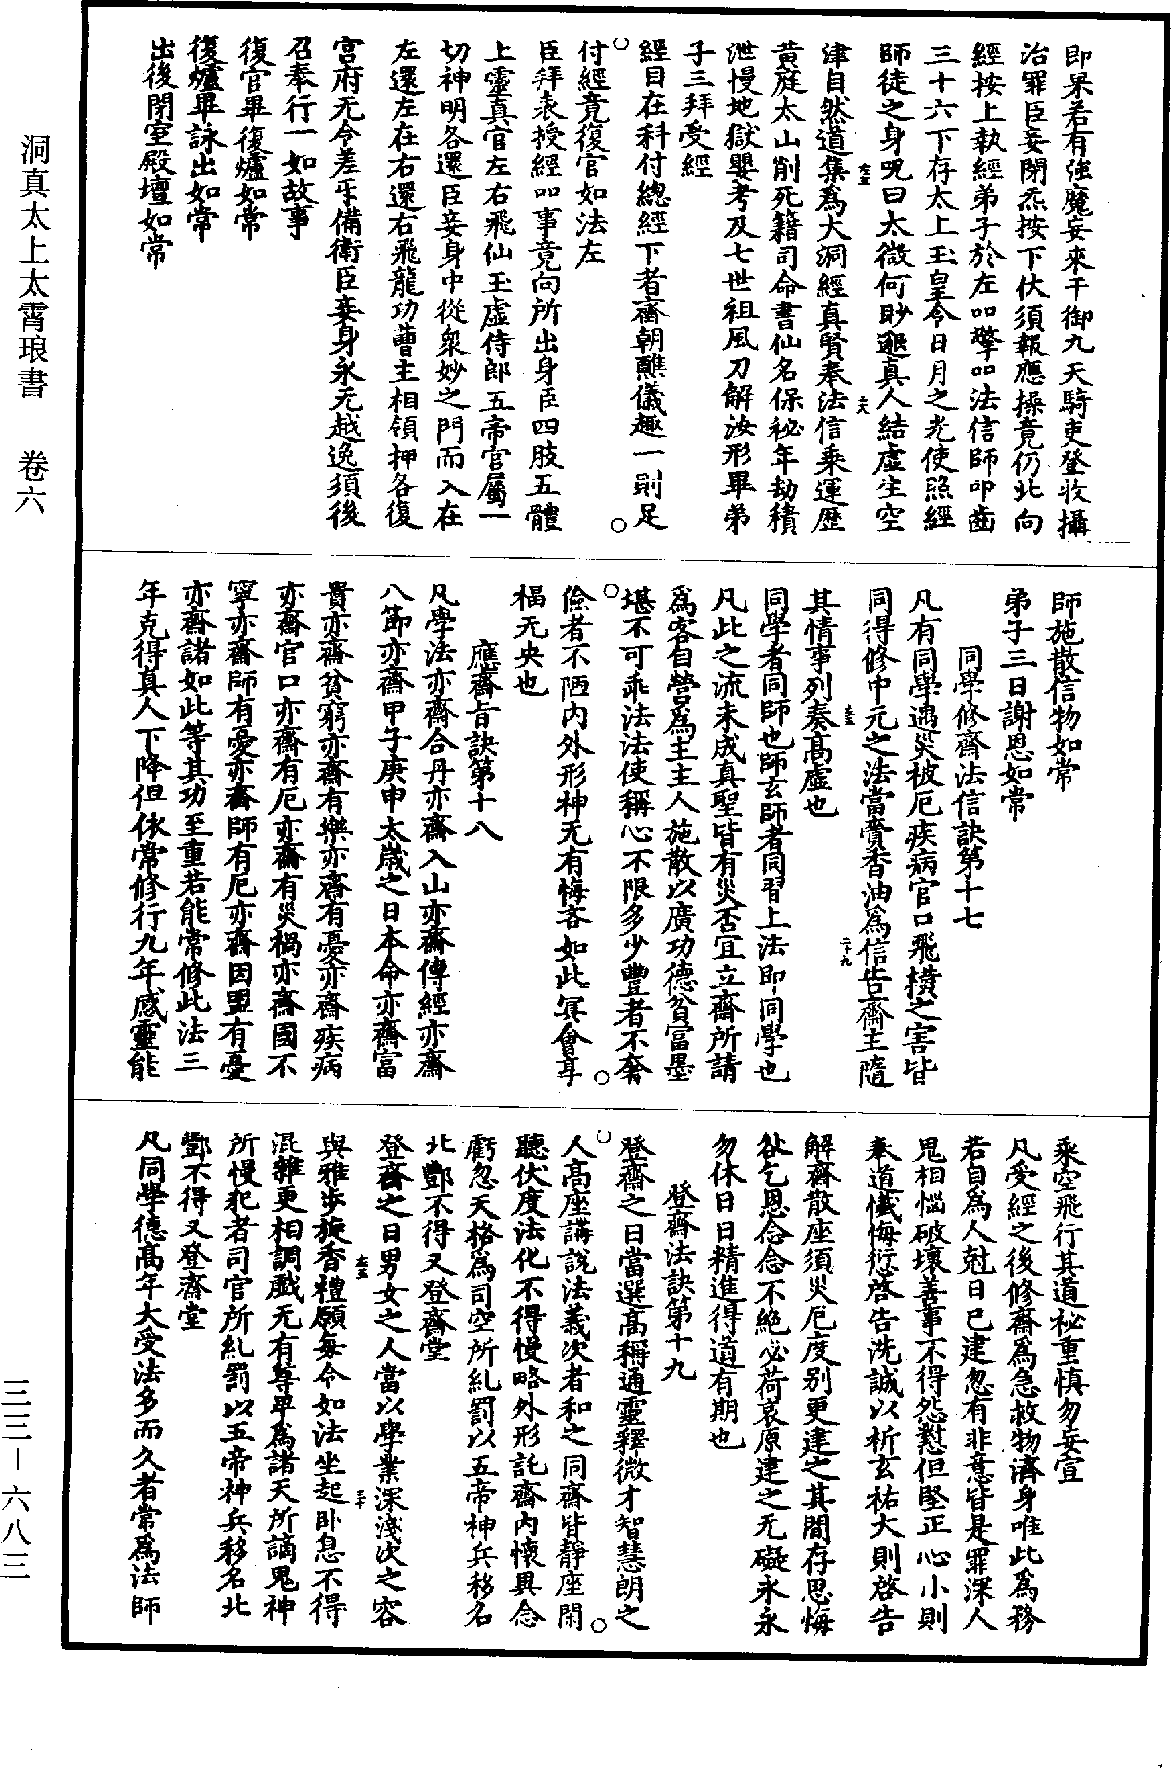 洞真太上太霄琅書　卷六
即杲若有強魔妄來干御九天騎吏登收攝
治罪臣妾閉炁按下伏須報應操竟仍北向
經按上執經弟子於左叩擎叩法信師叩齒
三十六下存太上玉皇令日月之光使照經
師徒之身呪曰太微何眇邈真人結虛生空
津自然道集為大洞經真賢奉法信乘運歷
黃庭太山削死籍司命書仙名保祕年劫積
泄慢地獄嬰考及七世祖風刀解汝形畢弟
子三拜受經
經目在科付總經下者齋朝醮儀趣一則足
付經竟復官如法左
臣拜表授經叩事竟向所出身臣四肢五體
上靈真官左右飛仙玉虛侍郎五帝官屬一
切神明各還臣妾身中從衆妙之門而入在
左還左在右還右飛龍功曹主相領押各復
宮府无令差乎備衛臣妾身永无越逸須後
召奉行一如故事
復官畢復爐如常
復爐畢詠出如常
出後閉室殿壇如常
師施散信物如常
弟子三日謝恩如常
同學修齋法信訣第十七
凡有同學遇災被厄疾病官口飛橫之害皆
同得修中元之法當賫香油為信告齋主隨
其情事列奏高虛也
同學者同師也師玄師者同習上法即同學也
凡此之流未成真聖皆有災否宜立齋所請
為客自營為主主人施散以廣功德貧富量
堪不可乖法法使稱心不限多少豐者不奢
儉者不陋內外形神无有悔吝如此冥會享
福无央也
應齋旨訣第十八
凡學法亦齋合丹亦齋入山亦齋傳經亦齋
八節亦齋甲子庚申太歲之日本命亦齋富
貴亦齋貧窮亦齋有樂亦齋有憂亦齋疾病
亦齋官口亦齋有厄亦齋有災禍亦齋國不
寧亦齋師有憂亦齋師有厄亦齋因盟有憂
亦齋諸如此等其功至重若能常修此法三
年克得真人下降但依常修行九年感靈能
乘空飛行其道祕重慎勿妄宣
凡受經之後修齋為急救物濟身唯此為務
若自為人尅日已建忽有非意皆是罪深人
鬼相惱破壞善事不得怨懟但堅正心小則
奉道懺悔愆啓告洗誠以祈玄祐大則啓告
解齋散座須災厄度别更建之其間存思悔
咎乞恩念念不絕必荷哀原建之无礙永永
勿休日日精進得道有期也
登齋法訣第十九
登齋之日當選高稱通靈釋微才智慧朗之
人高座講說法義次者和之同齋皆靜座閑
聽伏度法化不得慢略外形託齋內懷異念
虧忽天格為司空所糺罰以五帝神兵移名
北酆不得又登齋堂
登齋之日男女之人當以學業深淺次之容
與雅步旋香禮願每令如法坐起卧息不得
混雜更相調戲无有尊卑為諸天所謫鬼神
所慢犯者司官所糺罰以五帝神兵移名北
酆不得又登齋堂
凡同學德高年大受法多而久者常為法師
三三－六八三